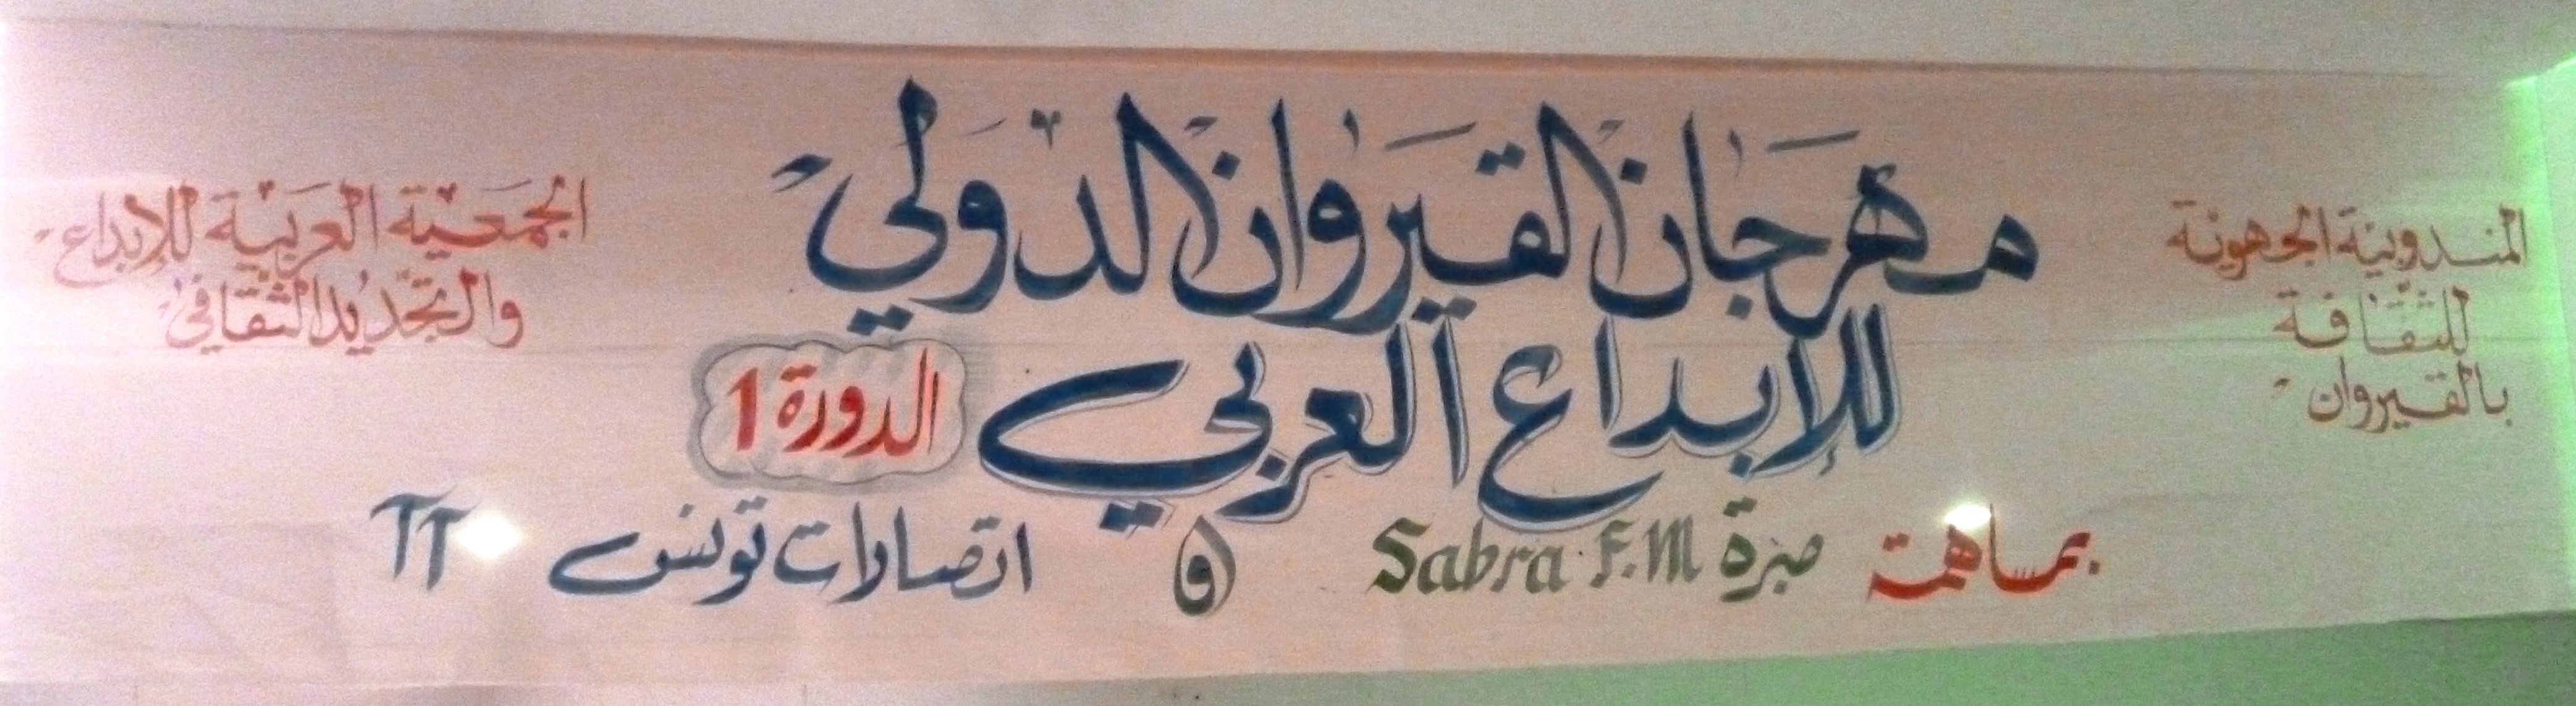 المندوبية الجهوية
للثقافة
بالقيروان
مهرجان القيروان الدولي
للإبداع العربي
الدورة 1
الجمعية العربية للإبداع
والتجديد الثقافي
بمساهمة صبرة Sabra F.M و اتصالات تونس TT